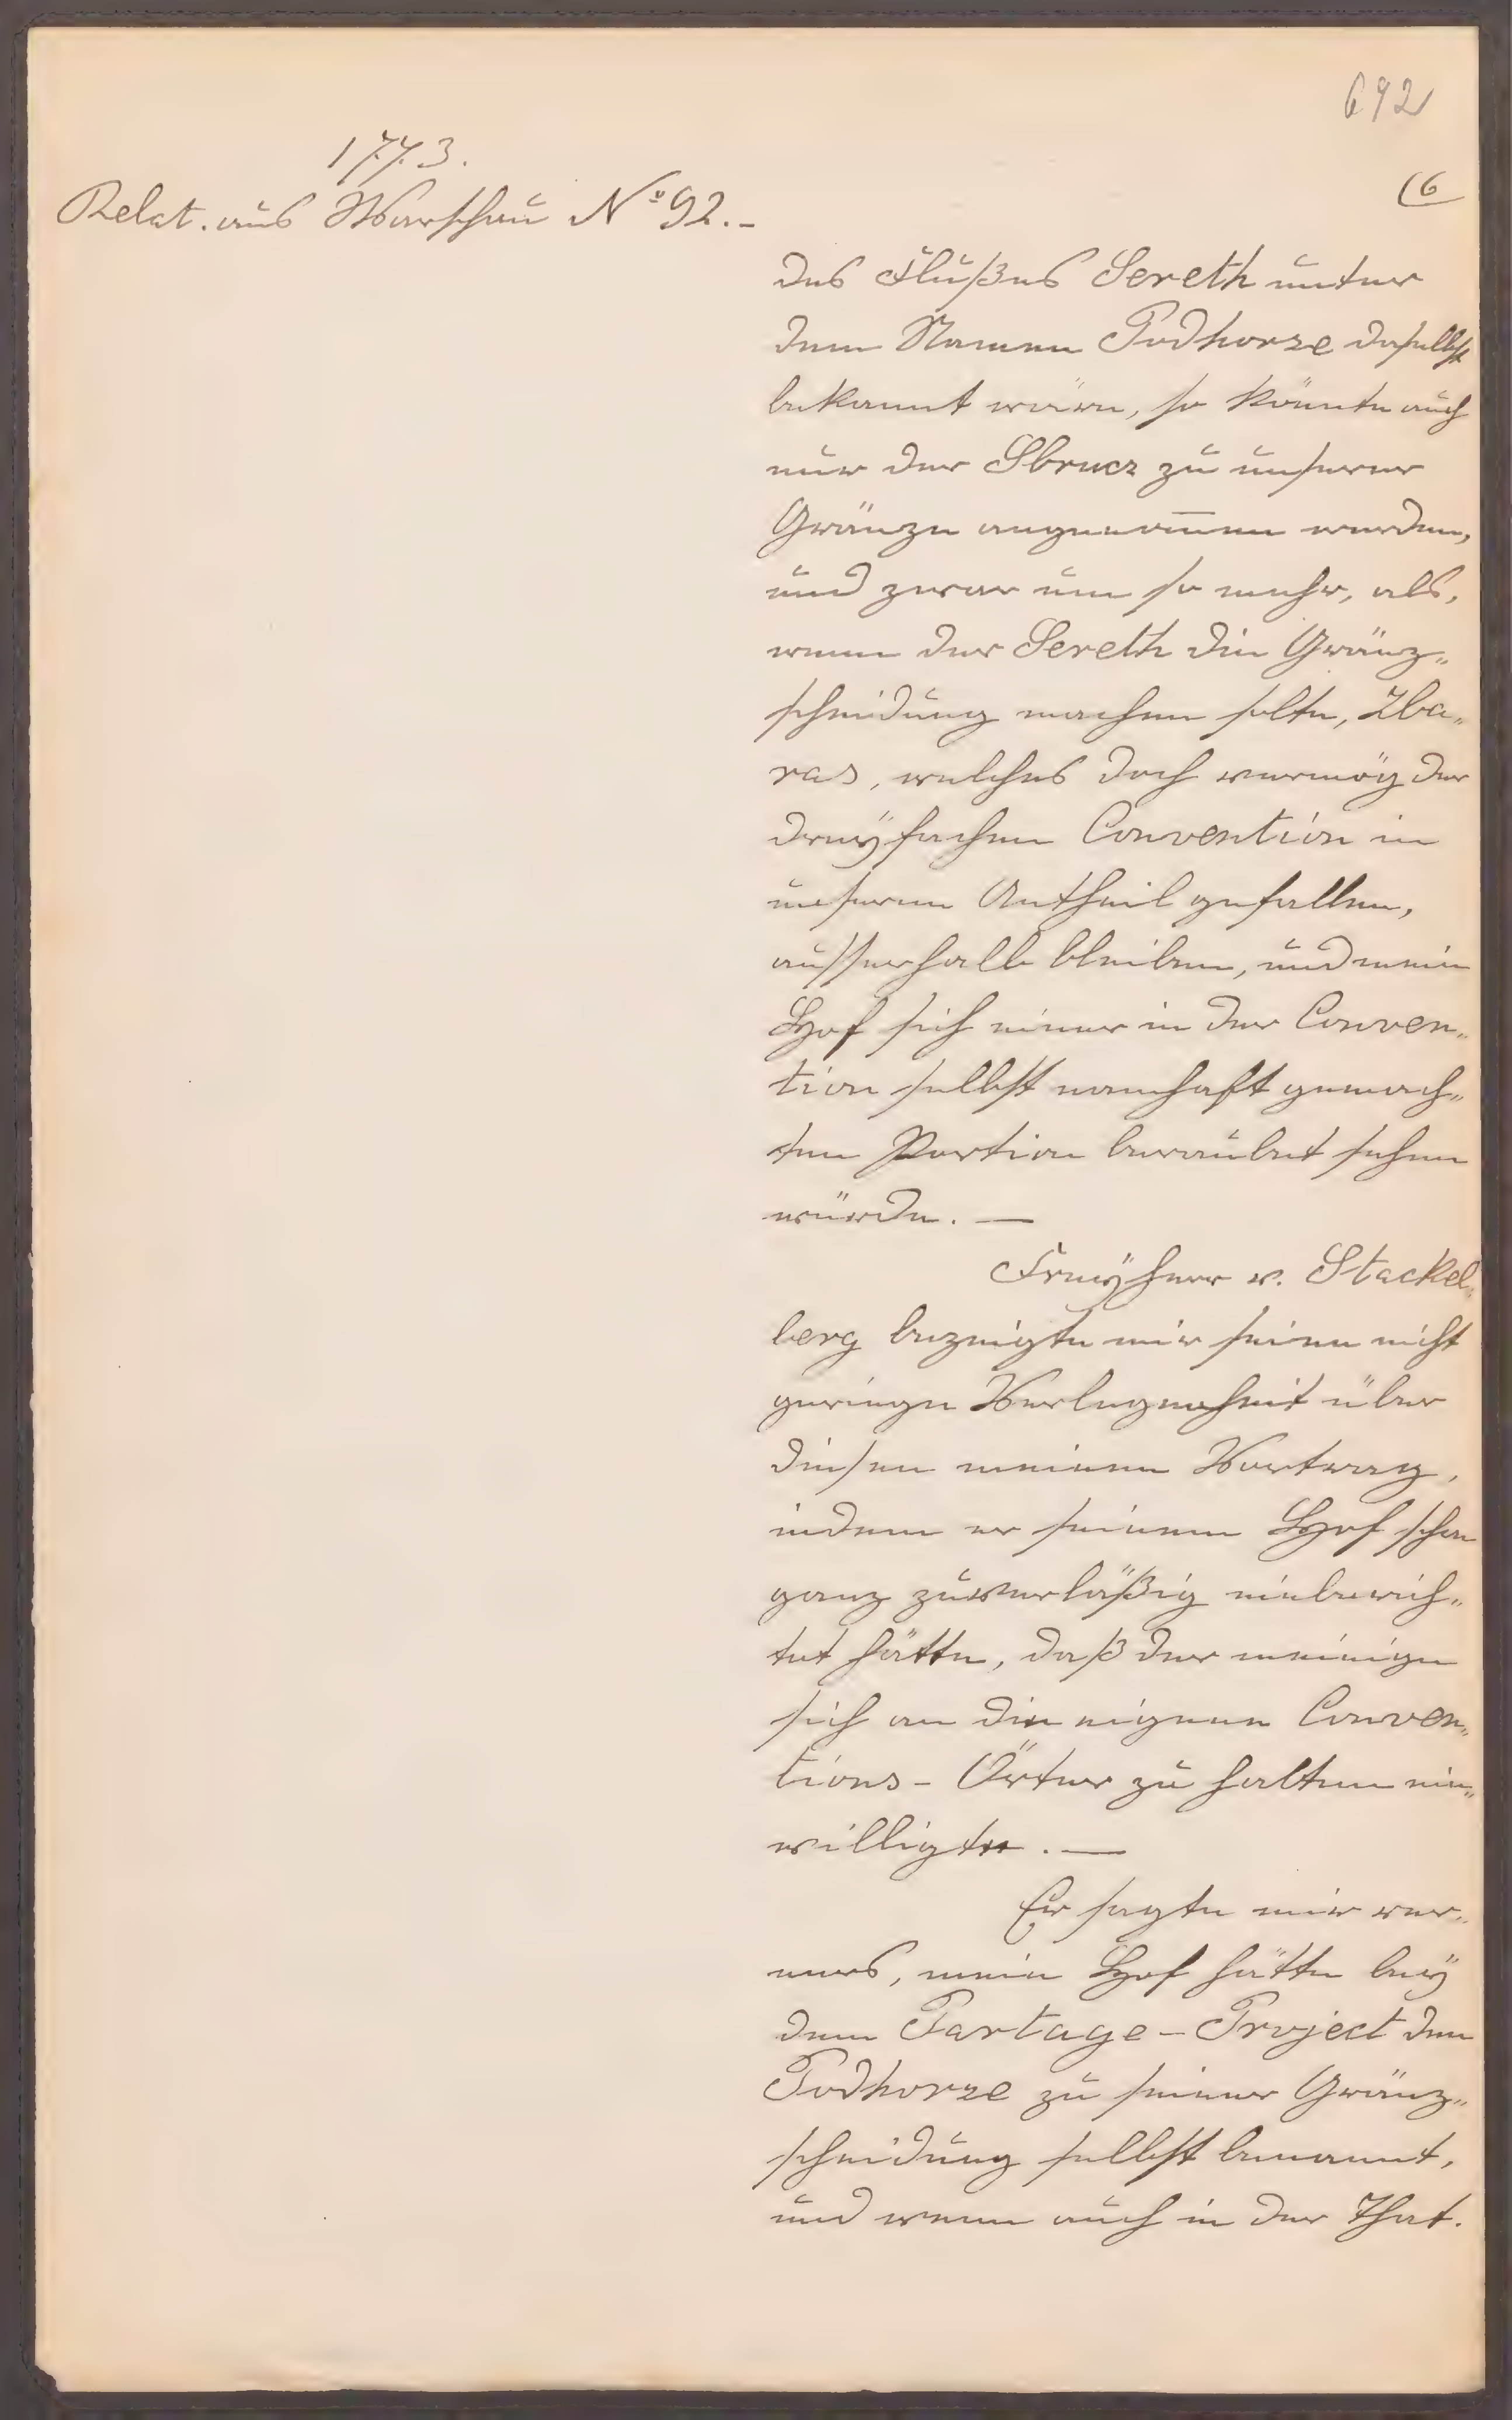 692
1773.
(6
Relat. aus Warschau No 92.-
des Flußes Sereth unter
dem Namen Podhorze daselbst
bekannt wäre, so könnte auch
nur der Sbrucz zu unserer
Gränze angenom̄en werden,
und zwar um so mehr, als,
wenn der Sereth die Gränz„
scheidung machen solte, Zba„
ras, welches doch vermög der
dreÿfachen Convention in
unseren Antheil gefallen,
ausserhalb bleiben, und mein
Hof sich einer in der Conven„
tion selbst namhaft gemach„
ten Portion beraubet sehen
würde. —
Freÿherr v. Stackel„
berg bezeigte mir seine nicht
geringe Verlegenheit über
diesen meinen Vortrag,
indem er seinem Hof schon
ganz zuverläßig einberich„
tet hätte, daß der meinige
sich an die eigenen Conven„
tions- Örter zu halten ein„
willigte. —
Er sagte mir fer„
ners, mein Hof hätte beÿ
dem Partage-Project den
Podhorze zu seiner Gränz„
scheidung selbst benannt,
und wenn auch in der That.